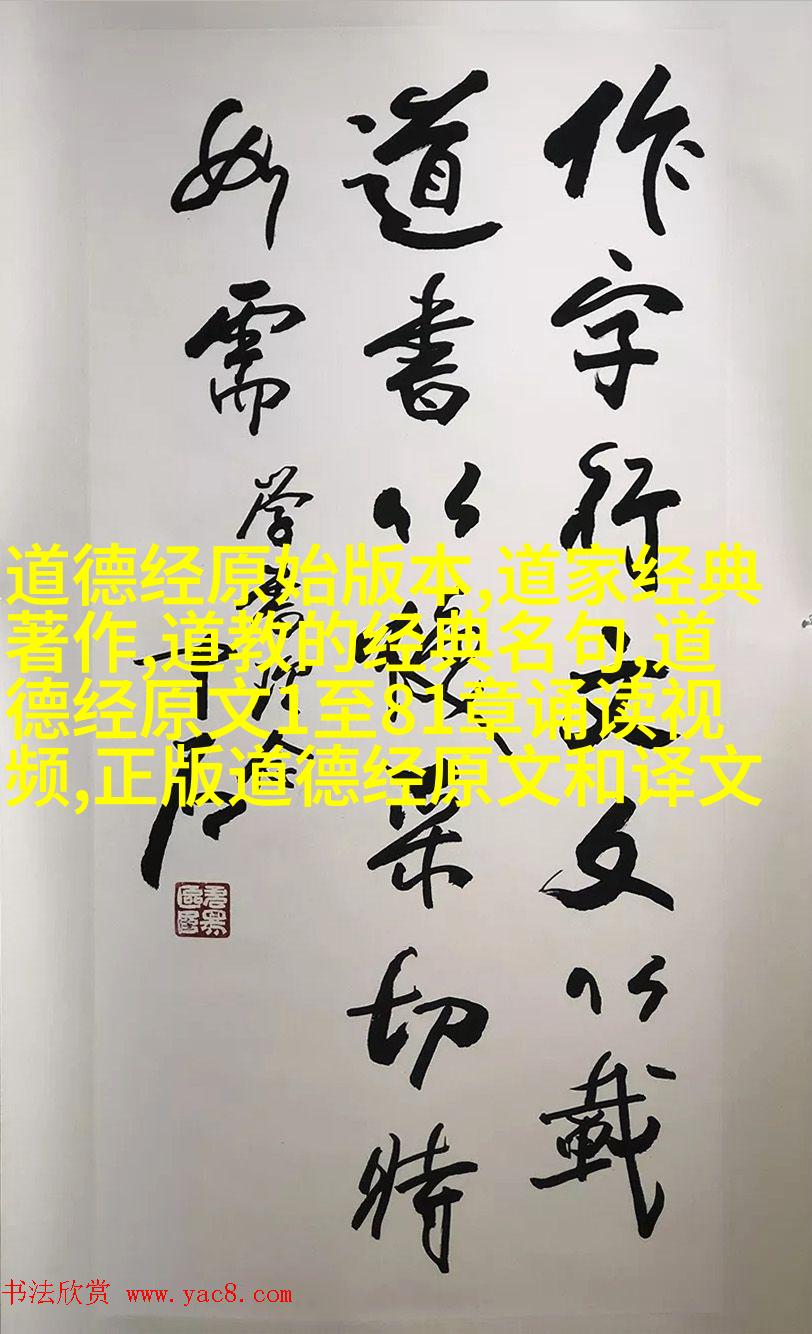 作字行文文以載
道書以采切時
如需
道德经原始版本,道家经典
著作,道教的经典名句,道
德经原文1至81章诵读视
频,正版道德经原文和译文
书法欣赏 www.yac8.com